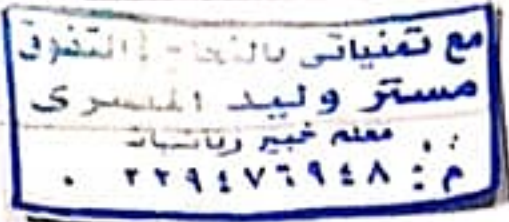 مع تمنياتى بالنجاح والتفوق
مستر وليد المنسرى
معلم خبير رياضيات
م : ٠ ٢٢٩٤٧٦٩٤٨